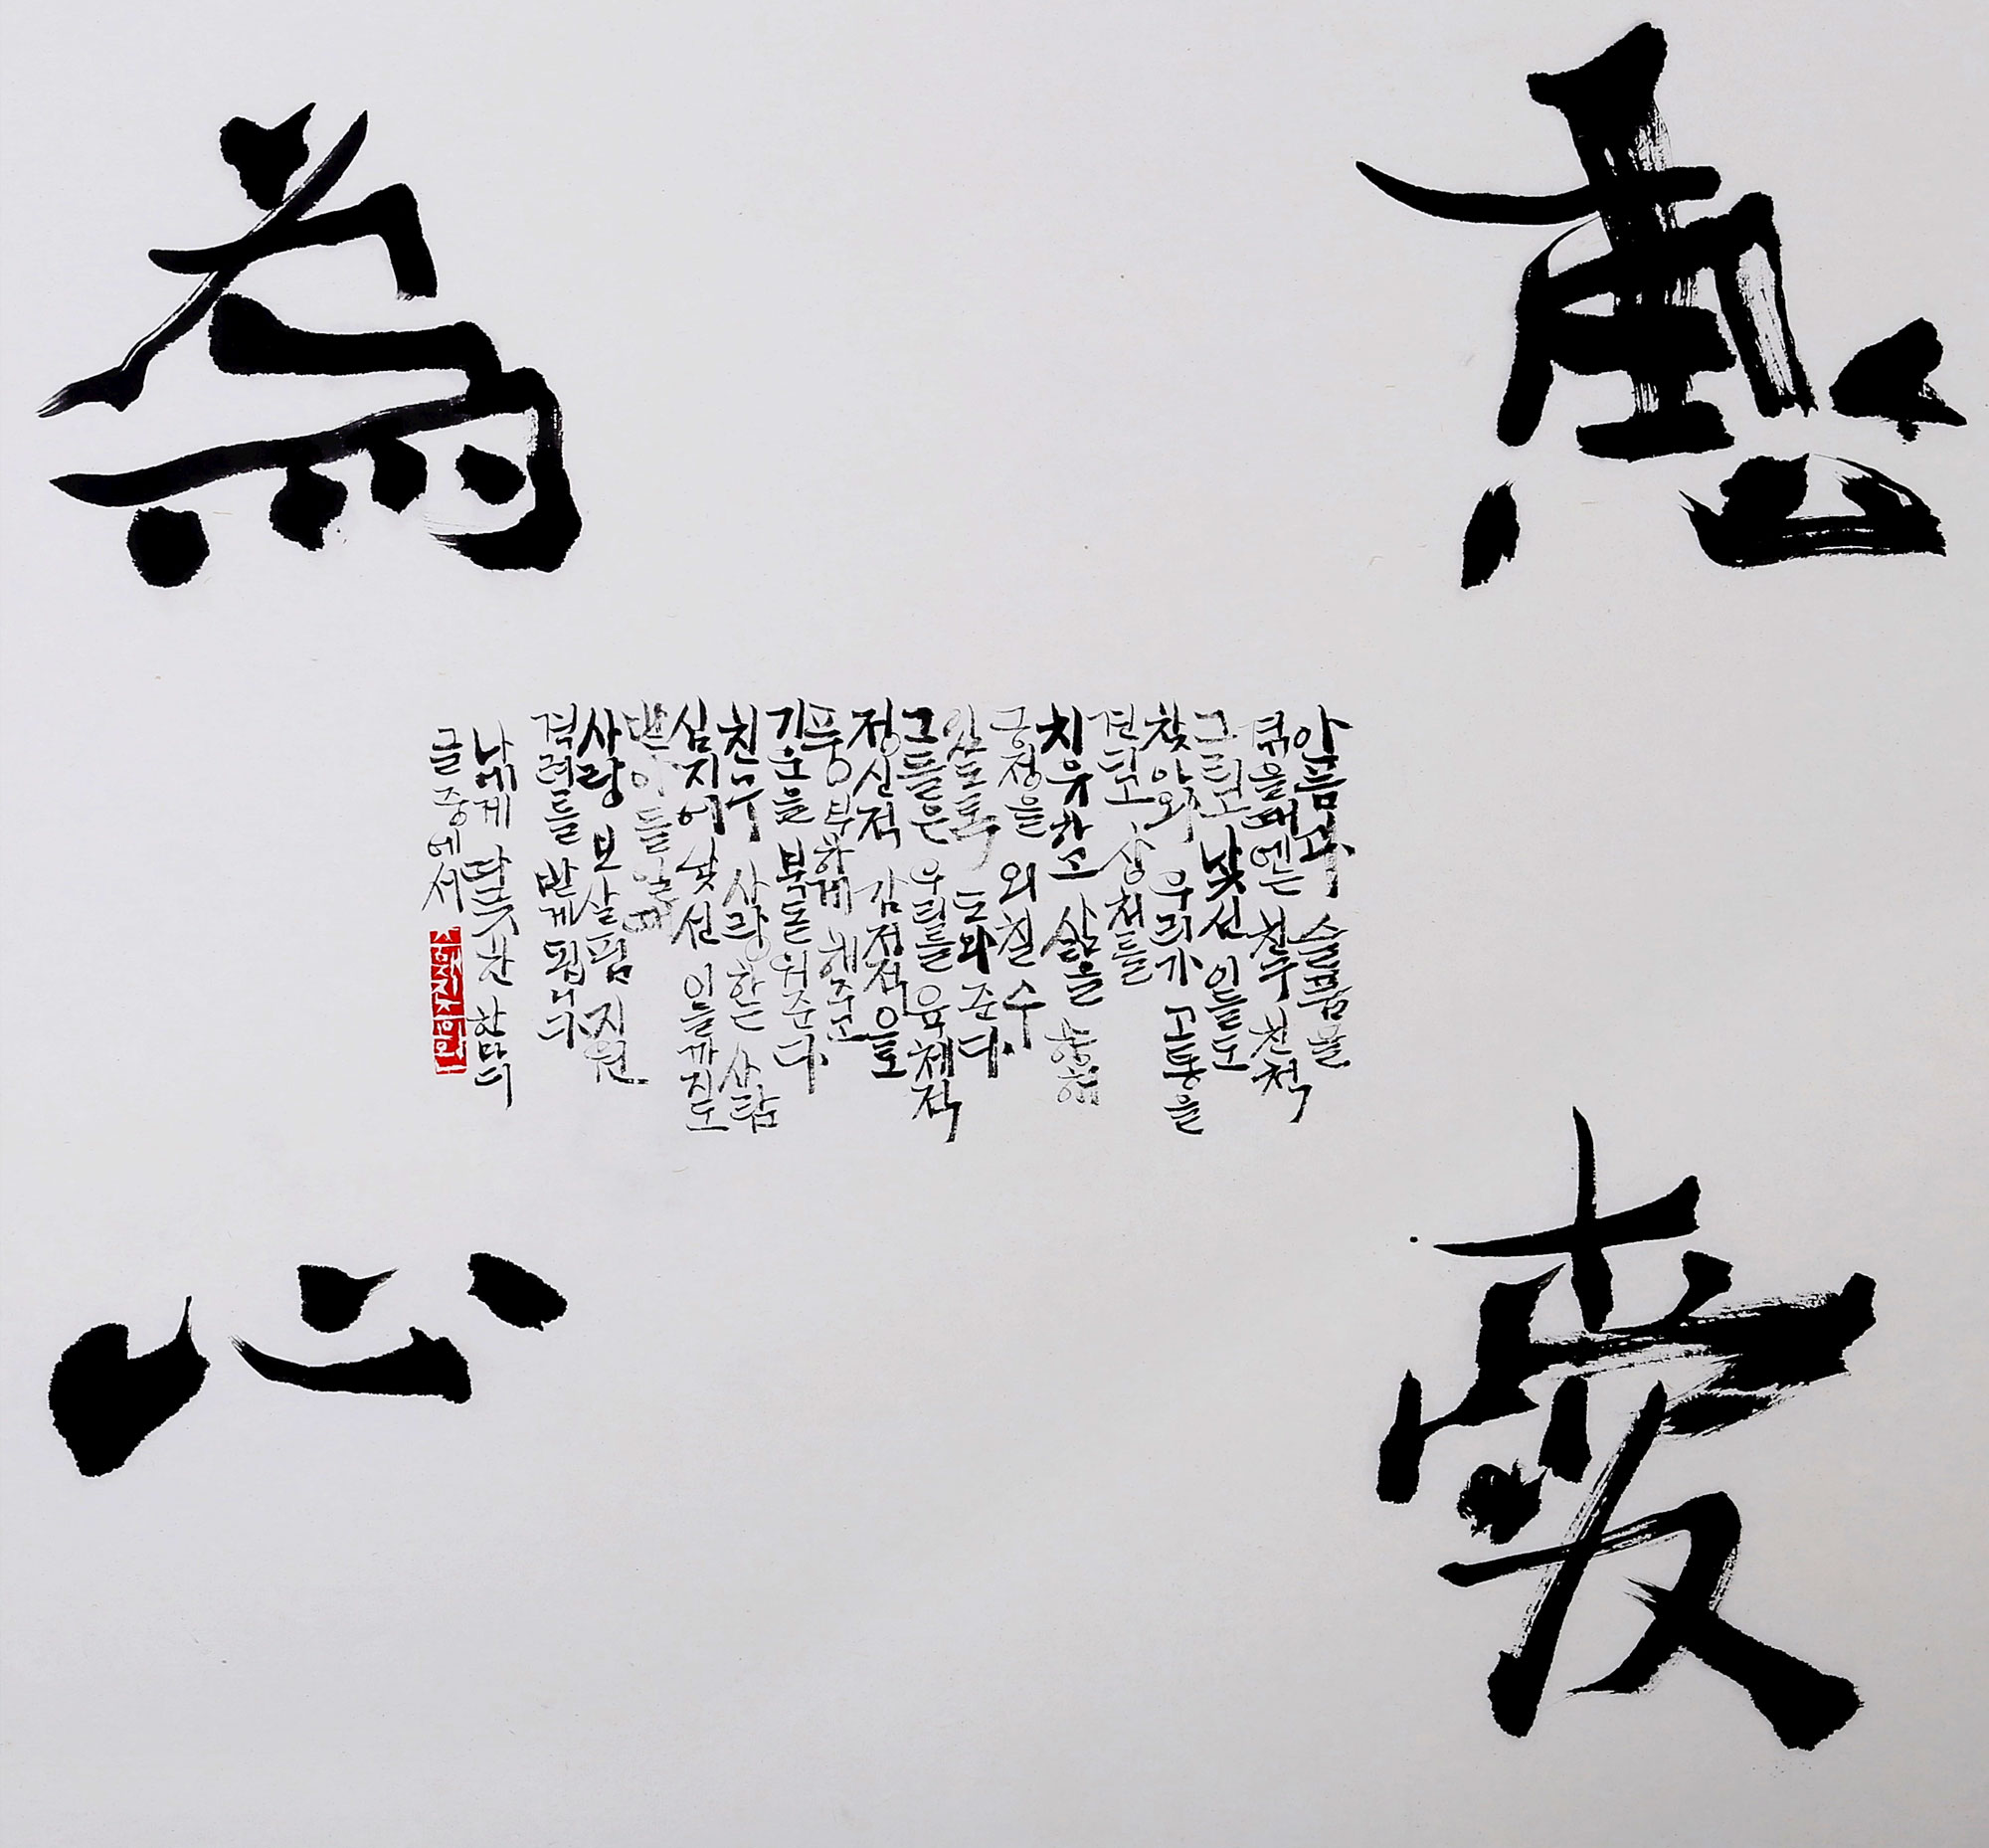 惠
愛
為
心
아픔과 슬픔을
겪을때에는 친구 친척
그리고 낯선 이들도
찾아와 우리가 고통을
견디고, 상처를
치유하고 삶을 향해
긍정을 외칠 수
있도록 도와 준다.
그들은 우리를 육체적
정신적 감정적으로
풍부하게 해주고
기운을 북돋워준다.
친구 사랑하는 사람
심지어 낯선 이들까지도
받아들일때
사랑 보살핌 지원
격려를 받게됩니다
나에게 따뜻한 한마디
글 중에서